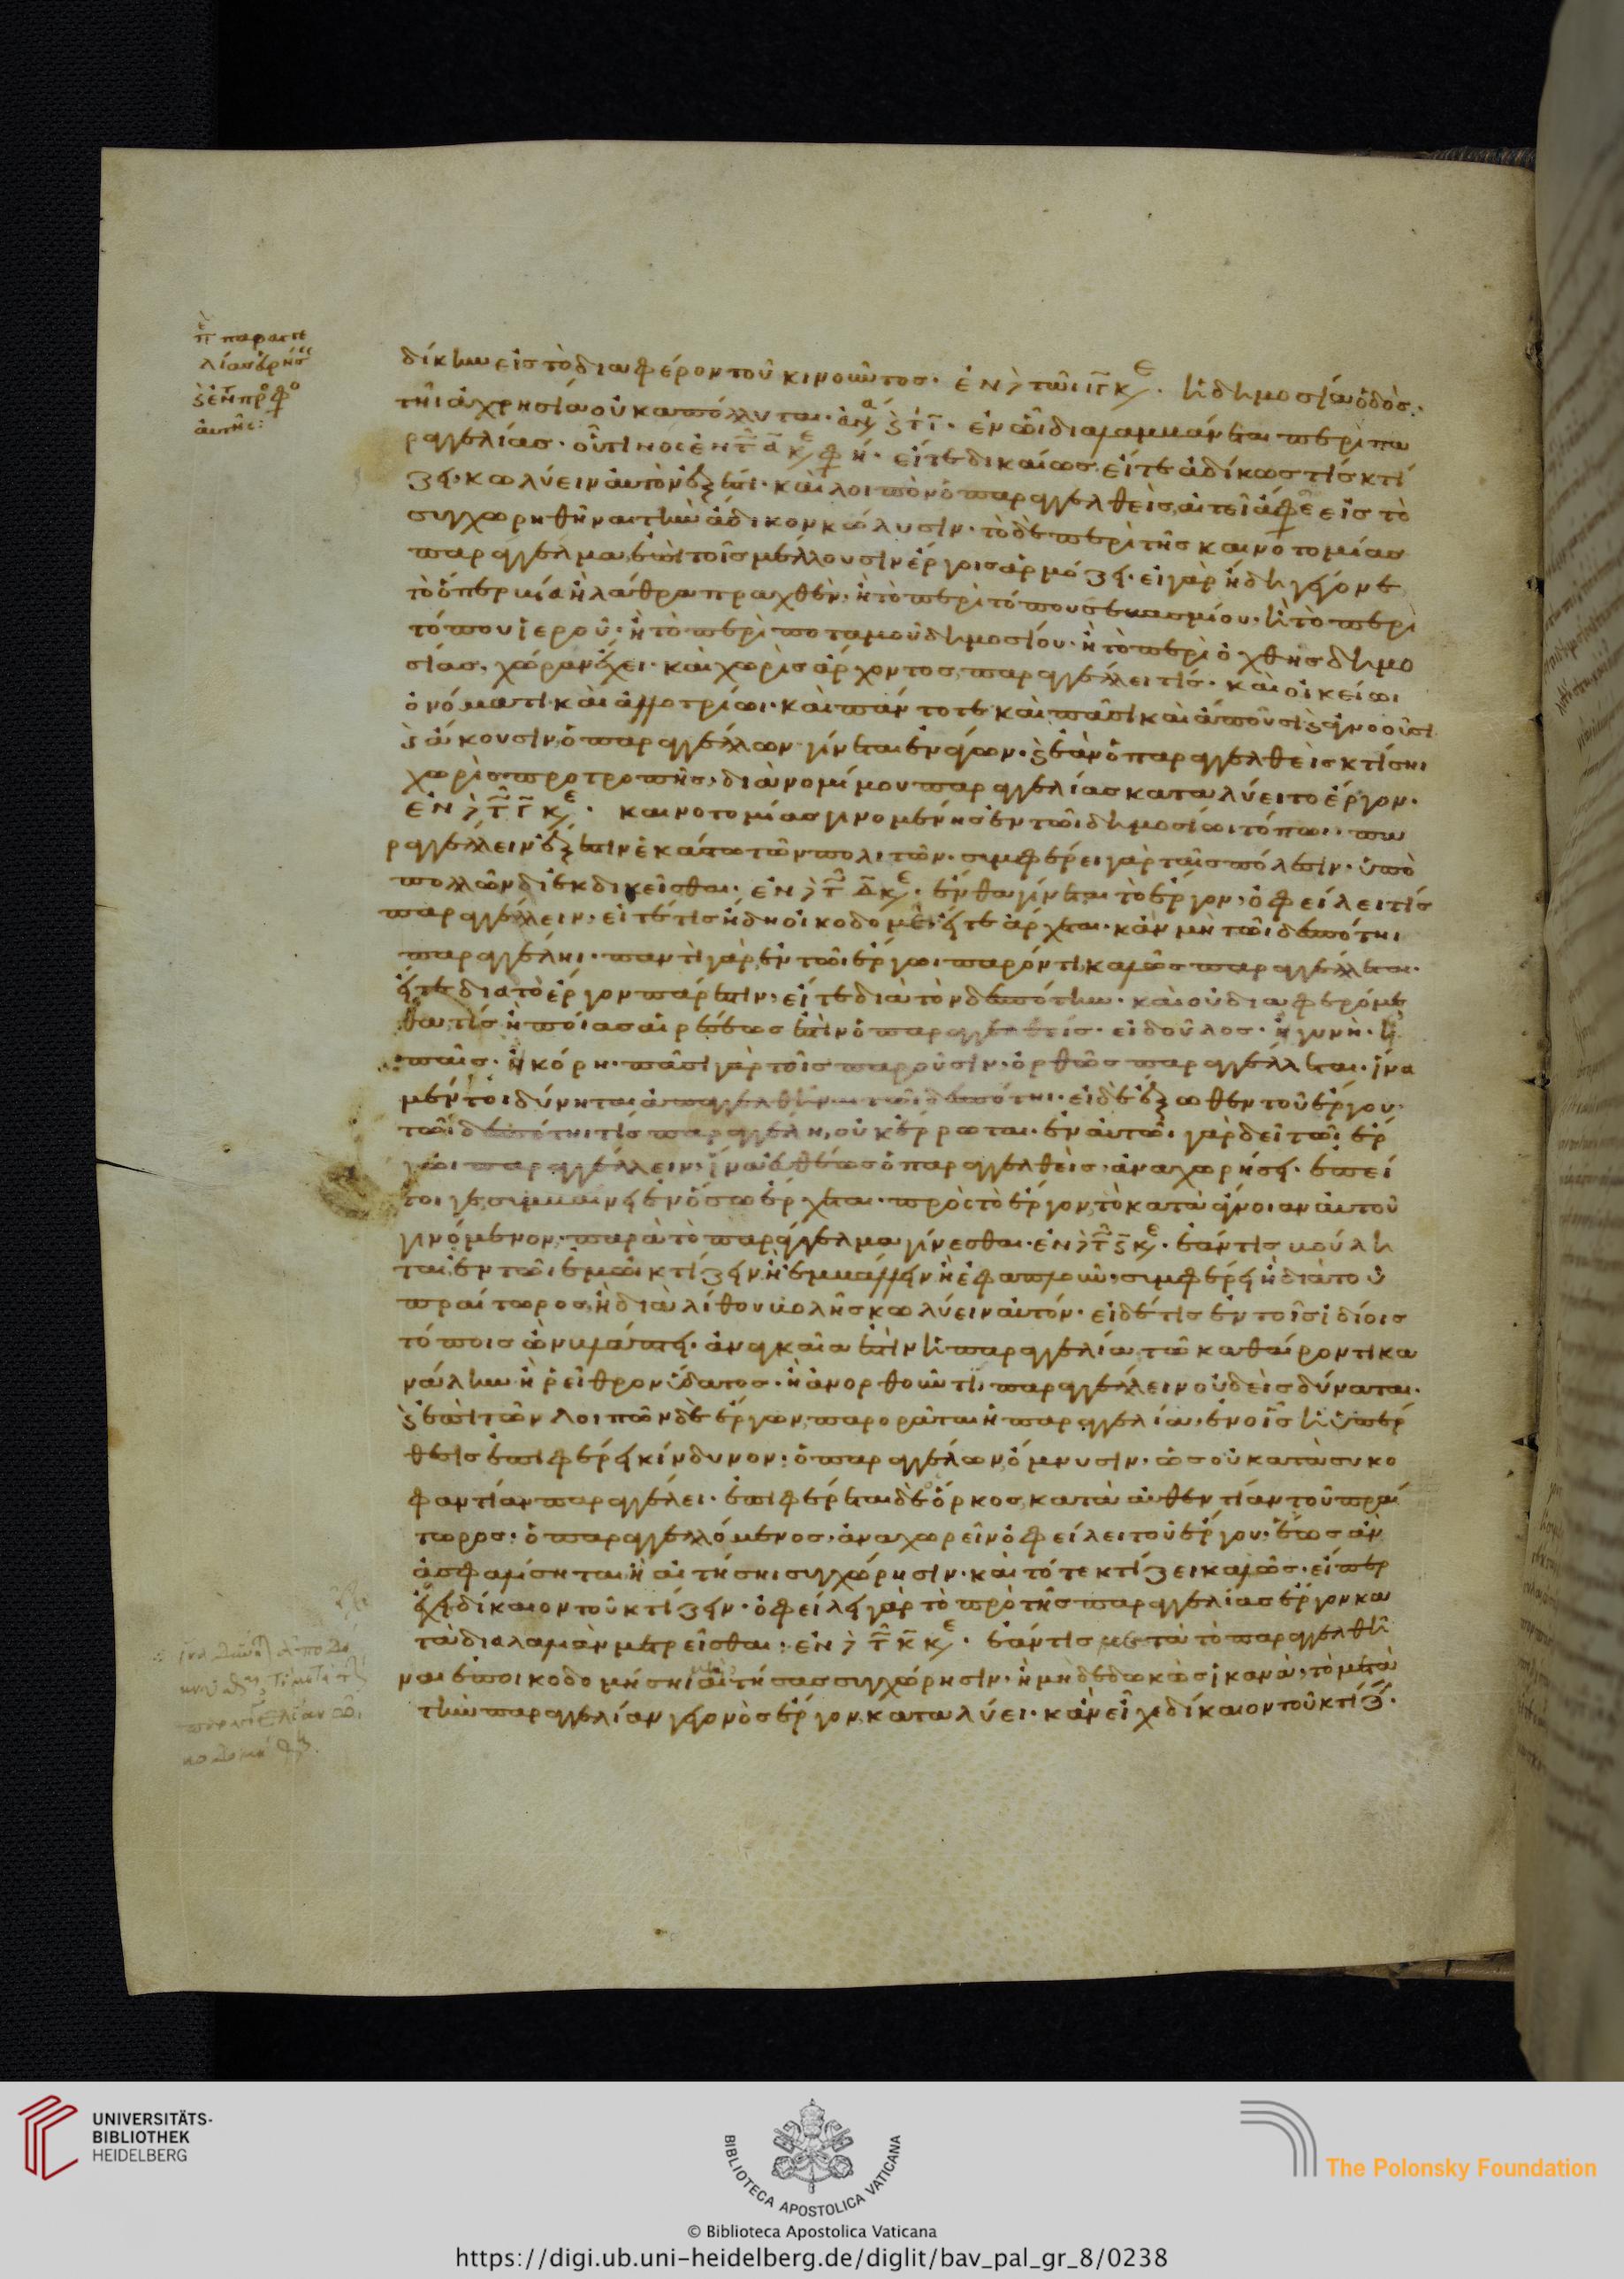 δίκην εἰς τὸ διαφέρον τοῦ κινοῦντος. ἐν τῶι ιγ κε. ἡ δημοσία ὁδὸς
τῆι ἀχρησίαι οὐκ ἀπόλλυται. ἐν ᾧ διαλαμβάνεται περὶ πα
ραγγελίας. οὗτινος ἐν τ α κε φη. εἴτε δικαίως εἴτε ἀδίκως τὶς κτί
ζει. κωλύειν αὐτὸν ἔξεστι. καὶ λοιπὸν ὁ παραγγελθεὶς αἰτεῖ εἰς τὸ
συγχωρηθῆναι τὴν ἄδικον κώλυσιν. τὸ δὲ περὶ τῆς καινοτομίας
παράγγελμα, ἐπὶ τοῖς μέλλουσιν ἔργοις ἁρμόζει. εἰ γὰρ ἤδη γέγονε
τὸ ὅπερ βίαι ἢ λάθρα πραχθὲν. ἢ τὸ περὶ τόπου σεβασμίου. ἢ τὸ περὶ
τόπου ἱεροῦ. ἢ τὸ περὶ ποταμοῦ δημοσίου. ἢ τὸ περὶ ὄχθης δημο
σίας, χώραν ἔχει. καὶ χωρὶς ἄρχοντος παραγγέλλει τίς. καὶ οἰκείωι
ὀνόματι καὶ ἀλλοτρίωι. καὶ πάντοτε καὶ πᾶσι καὶ ἀποῦσι
ἄκουσιν, ὁ παραγγέλλων γίνεται ἐνάγων. ἐὰν ὁ παραγγελθεὶς κτίσηι
χωρὶς προτροπῆς, διὰ νομίμου παραγγελίας καταλύει τὸ ἔργον.
ἐν τ γ κε. καινοτομίας γινομένης ἐν τῶι δημοσίωι τόπωι. πα
ραγγέλλειν ἔξεστιν ἑκάστω τῶν πολιτῶν. συμφέρει γὰρ ταῖς πόλεσιν. ὑπὸ
πολλῶν διεκδικεῖσθαι. ἐν τ δ κε. ἔνθα γίνεται τὸ ἔργον, ὀφείλει τίς
παραγγέλλειν. εἴτε τίς ἤδη οἰκοδομεῖ. εἴτε ἄρχεται. κἂν μὴ τῶι δεσπότηι
παραγγέληι. παντὶ γὰρ ἐν τῶι ἔργωι παρόντι, καλῶς παραγγέλλεται.
εἴτε διὰ τὸ ἔργον πάρεστιν, εἴτε διὰ τὸν δεσπότην. καὶ οὐ διαφερόμε
θα τίς ἢ ποίας αἱρέσεως ἐστὶν ὁ παραγγελθείς. εἰ δοῦλος. ἢ γυνὴ. ἢ
παῖς. ἢ κόρη. πᾶσι γὰρ τοῖς παροῦσιν, ὀρθῶς παραγγέλλεται. ἵνα
μέντοι δύνηται ἀπαγγελθῆναι τῶι δεσπότηι. εἰ δὲ ἔξωθεν τοῦ ἔργου
τῶι δεσπότηι τίς παραγγέλη, οὐκ ἔρρωται. ἐν αὐτῶι γὰρ δεῖ τῶι ἔρ
γωι παραγγέλλειν, ἵνα εὐθέως ὁ παραγγελθεὶς, ἀναχωρήσει. ἐπεί
τοιγε συμβαίνει ἐν ὅσω ἔρχεται. πρὸς τὸ ἔργον, τὸ κατὰ ἄγνοιαν αὐτοῦ
γινόμενον. παρὰ τὸ παράγγελμα γίνεσθαι. ἐν τ ς κε. ἐάν τις βούλη
ται, ἐν τῶι ἐμῶι κτίζειν ἢ ἐμβάλλειν ἢ ἐξαπλοῦν, συμφέρει ἢ διὰ τοῦ
πραίτωρος, ἢ διὰ λίθου βολῆς κωλύειν αὐτόν. εἰ δέ τις ἐν τοῖς ἰδίοις
τόποις ὢν βλάπτει. ἀναγκαία ἐστὶν ἡ παραγγελία τῶ καθαίροντι κα
νάλην ἢ ῥεῖθρον ὕδατος. ἢ ἀνορθοῦντι, παραγγέλλειν οὐδεὶς δύναται.
ἐπὶ τῶν λοιπῶν δὲ ἔργων, παρορᾶται ἡ παραγγελία, ἐν οἷς ἡ ὑπέρ
θεσις ἐπιφέρει κίνδυνον. ὁ παραγγέλων ὄμνυσιν. ὡς οὐ κατὰ συκο
φαντίαν παραγγέλει. ἐπιφέρεται δὲ ὅρκος, κατὰ αὐθεντίαν τοῦ πραί
τωρος. ὁ παραγγελλόμενος, ἀναχωρεῖν ὀφείλει τοῦ ἔργου. ἕως ἂν
ἀσφαλίσηται, ἢ αἰτήσηι συγχώρησιν. καὶ τότε κτίζει καλῶς. εἴπερ
ἔχει δίκαιον τοῦ κτίζειν. ὀφείλει γὰρ τὸ πρὸ τῆς παραγγελίας ἔργον κα
ταδιαλαμὰν μετρεῖσθαι. ἐν τ κ κε. ἐάν τις μετὰ τὸ παραγγελθῆ
ναι ἐποικοδομήσηι αἰτήσας συγχώρησιν. ἢ μὴ δεδωκὼς ἱκανὰ, τὸ μετὰ
τὴν παραγγελίαν γεγονὸς ἔργον, καταλύει. κἂν εἶχε δίκαιον τοῦ κτίζ.
UNIVERSITÄTS-
BIBLIOTHEK
HEIDELBERG
BIBLIOTECA APOSTOLICA VATICANA
The Polonsky Foundation
© Biblioteca Apostolica Vaticana
https://digi.ub.uni-heidelberg.de/diglit/bav_pal_gr_8/0238